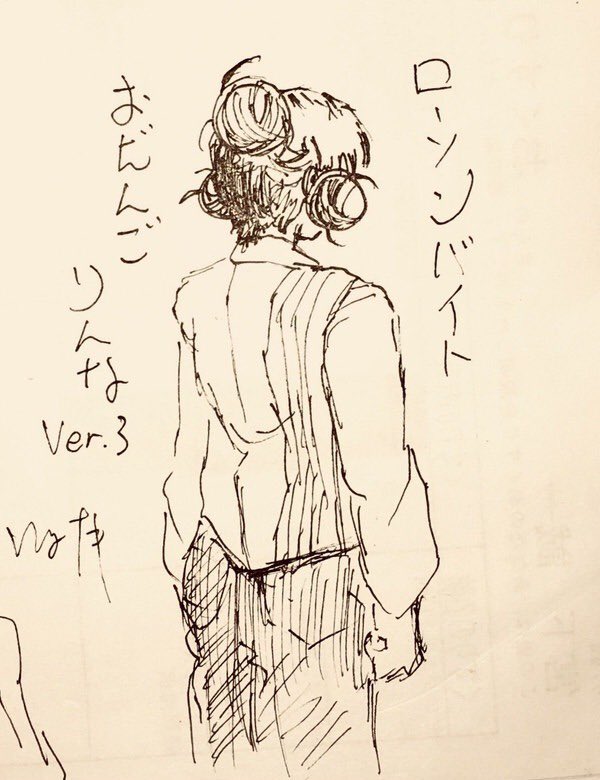 ローソンバイト
おだんご
りんな
Ver.3